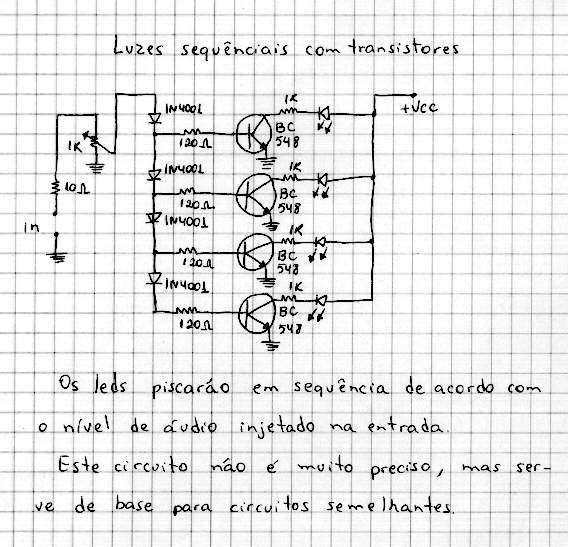 Luzes sequênciais com transistores
1K
IN4001
+VCC
BC
548
120Ω
1K
IN4001
1K
10Ω
BC
548
120Ω
IN4001
in
1K
BC
548
120Ω
IN4001
1K
BC
548
120Ω
Os leds piscarão em sequência de acordo com
o nível de áudio injetado na entrada.
Este circuito não é muito preciso, mas ser-
ve de base para circuitos semelhantes.